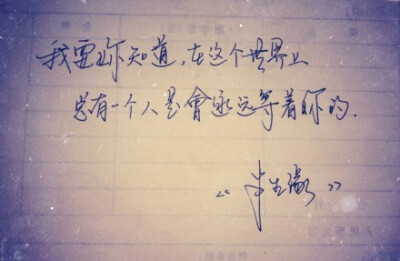 我要你知道,在这个世界上
总有一个人是會永远等着你的.
《半生缘》